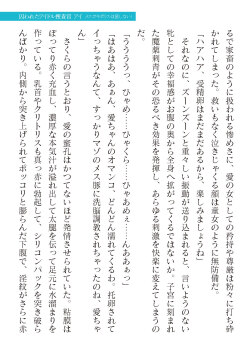 るで家畜のように扱われる惨めさに、愛の女としての矜持や尊厳は粉々に打ち砕
かれてしまった。救いもなく泣きじゃくる顔は童女のように無防備だ。
「ハアハア、受精卵はまだまだあるから、楽しみましょうね」
それなのに、ズーンズーンと重々しい振動が送り込まれると、言いようのない
牝としての幸福感がお腹の奥から全身へ拡がってくるではないか。子宮に刻まれ
た魔薬刺青がその恐るべき効果を発揮し、あらゆる刺激を快楽に変えてしまうの
だ。
「あああ、あぁん。愛ちゃんのオマンコ、どんどん濡れてくるわ。托卵されて
イっちゃうなんて、すっかりマゾのメス豚に洗脳調教されちゃったのね、愛ちゃ
ん」
さくらの言うとおり、愛の蜜汁はかつてないほど発情させられていた。粘膜は
ぽってり赤く充血し、濃厚な本気汁が溢れ出して太腿を伝って足元に水溜まりを
作っている。乳首やクリトリスも真っ赤に勃起して、シリコンパックを突き破ら
んばかり。内側から突き上げられてポッコリと膨らんだ下腹で、淫紋がさらに赤